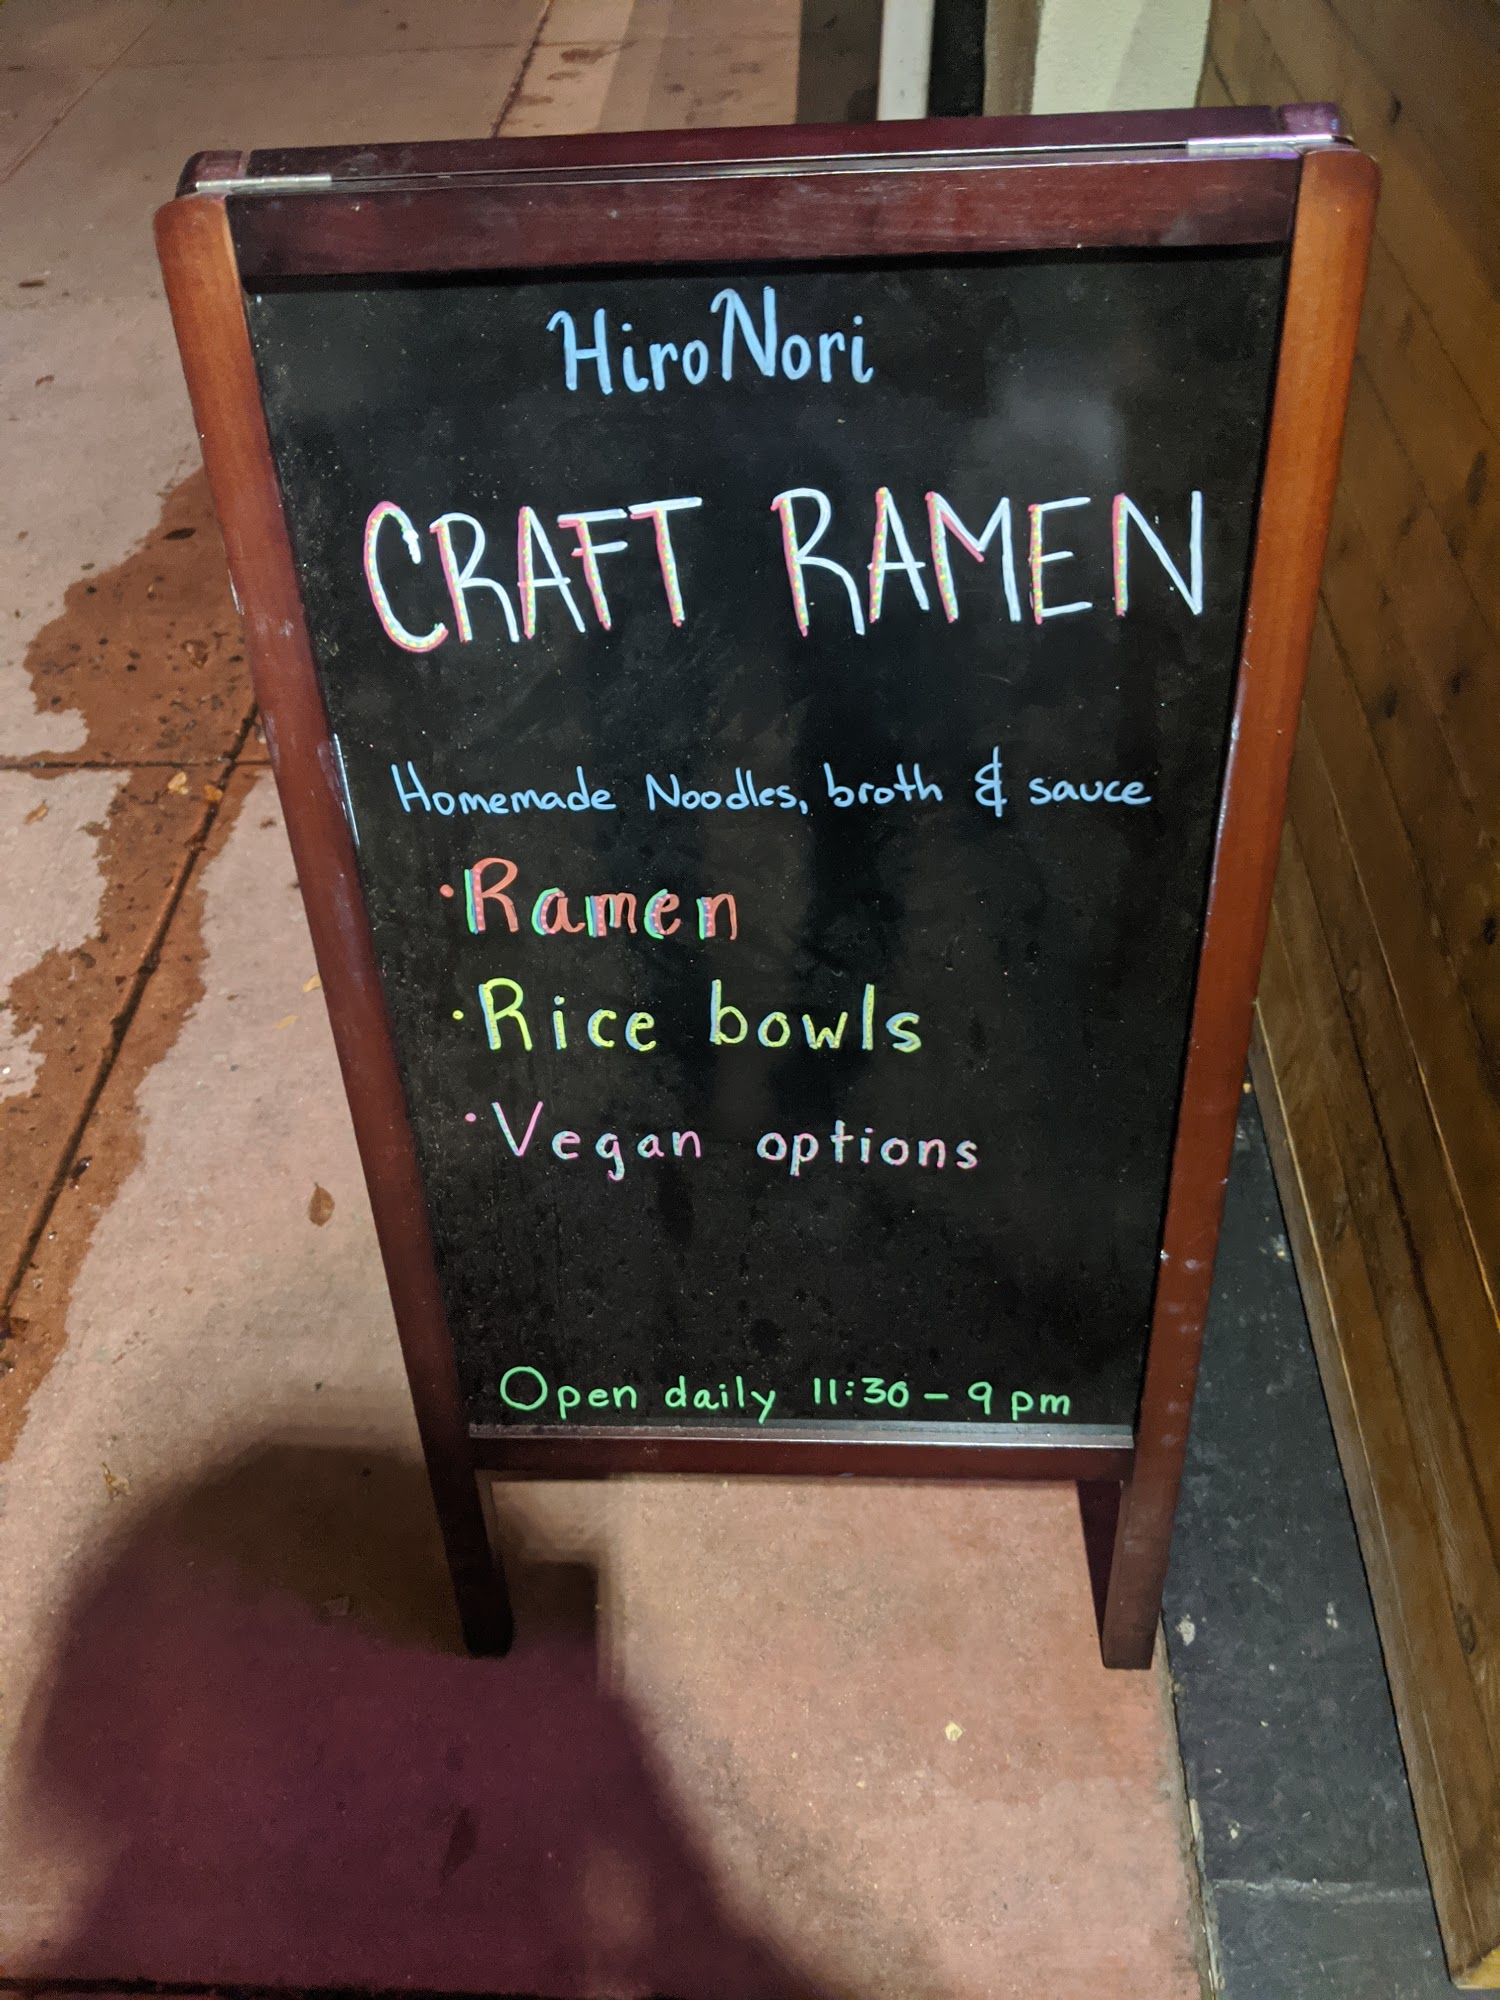 HiroNori
CRAFT RAMEN
Homemade Noodles, broth & sauce
· Ramen
· Rice bowls
· Vegan options
Open daily 11:30 - 9 pm